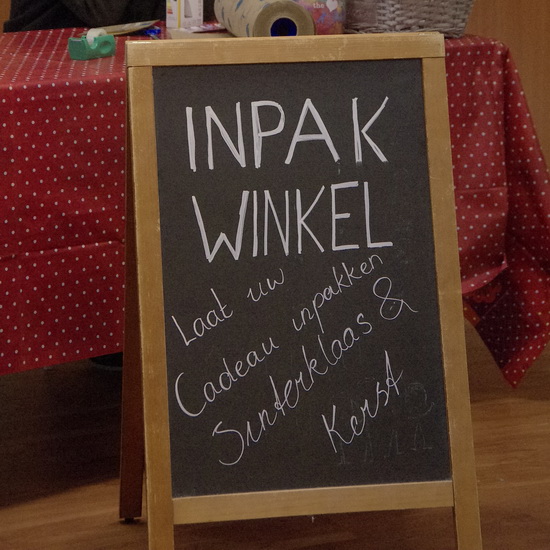 INPAK
WINKEL
Laat uw
Cadeau inpakken
Sinterklaas &
Kerst